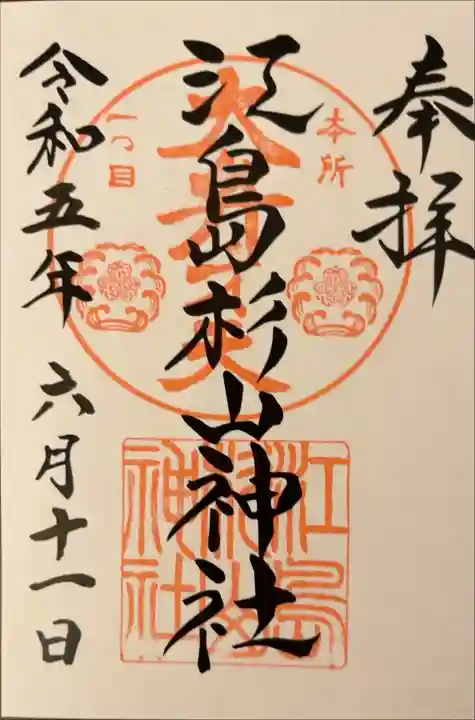 奉拝
本所
江島杉山神社
一つ目
令和五年六月十一日
江島
杉山
神社